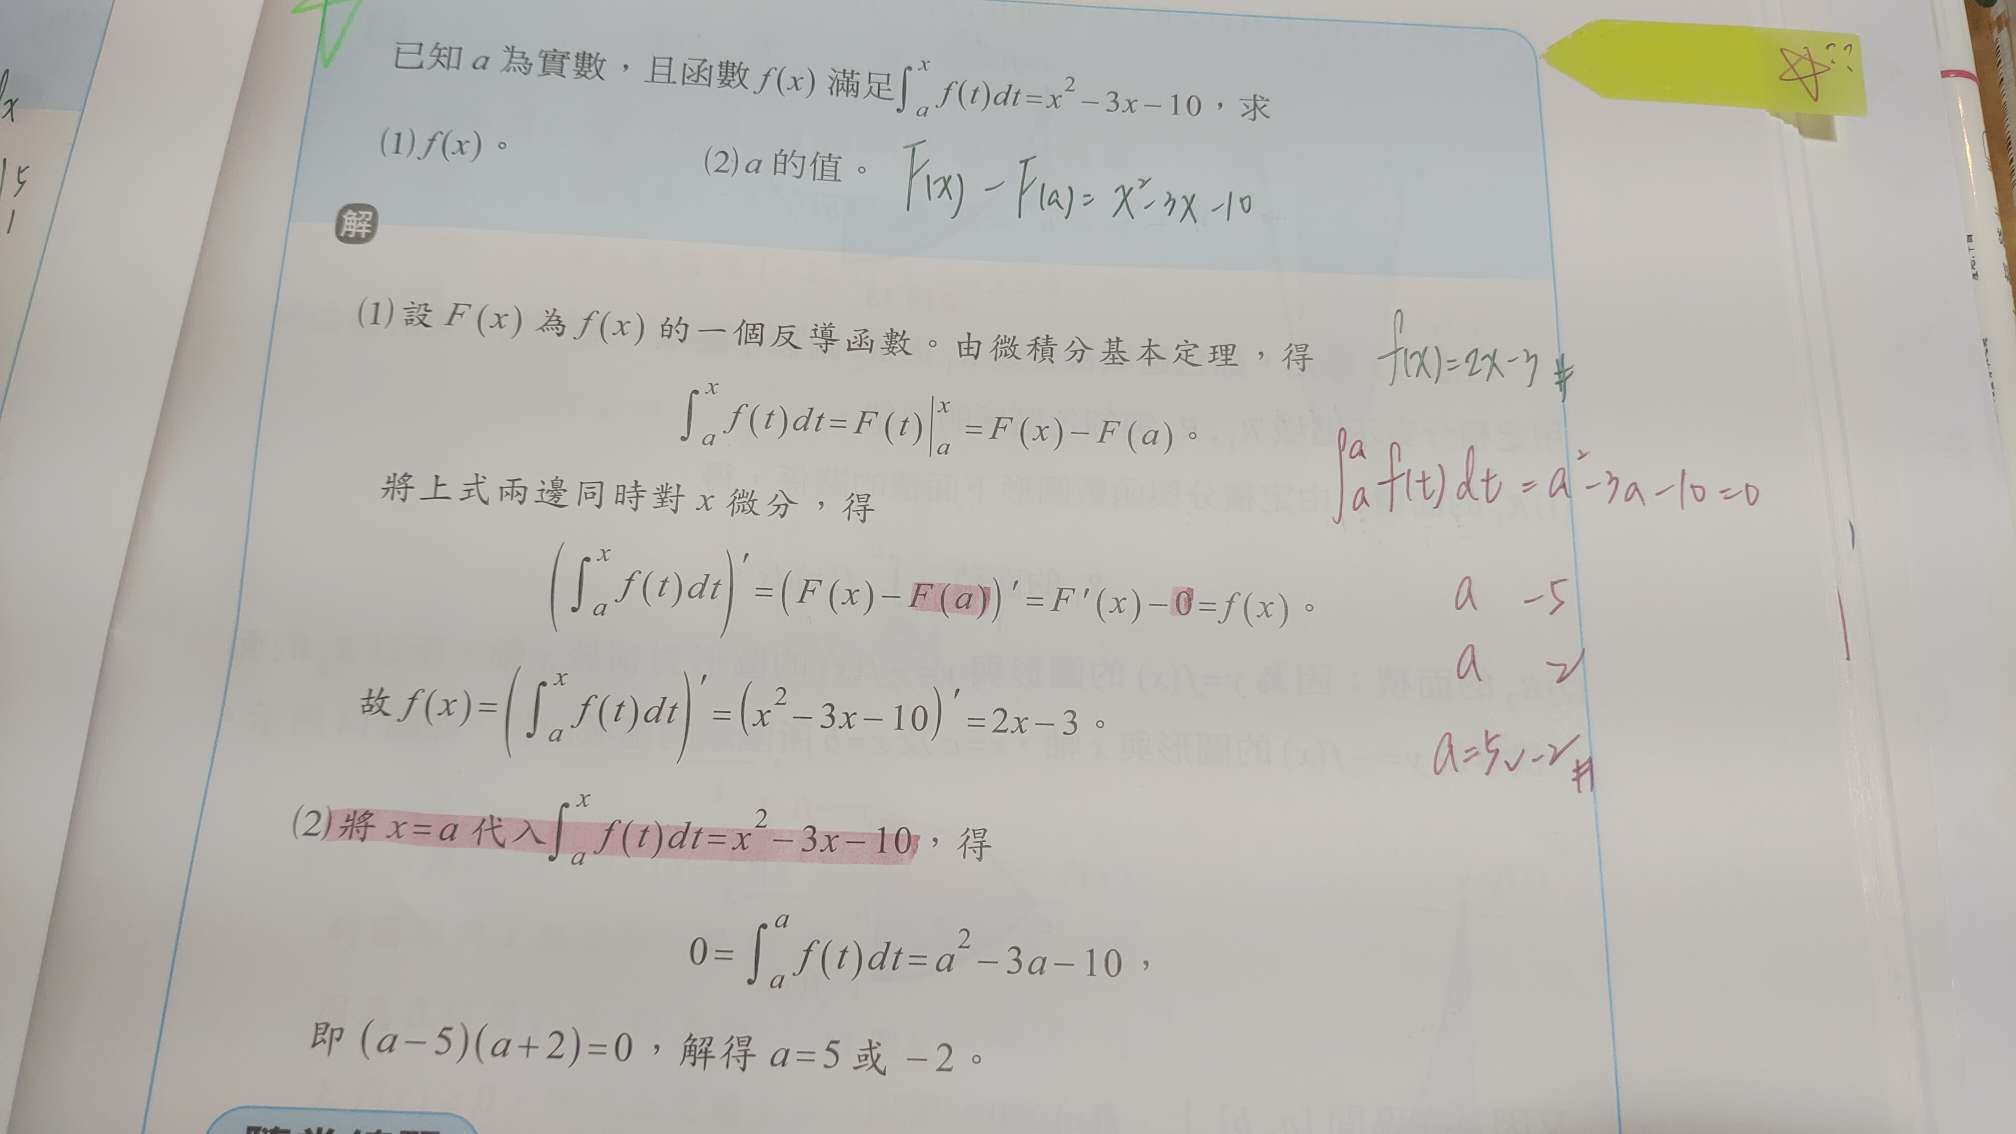 已知 a 為實數，且函數 f(x) 滿足∫ₐˣ f(t)dt=x²−3x−10，求
(1) f(x)。 (2) a 的值。
F(x) − F(a) = x²−3x−10
解
(1) 設 F(x) 為 f(x) 的一個反導函數。由微積分基本定理，得
f(x)=2x−3 #
∫ₐˣ f(t)dt=F(t)|ₐˣ=F(x)−F(a)。
∫ₐᵃ f(t)dt = a²−3a−10=0
將上式兩邊同時對 x 微分，得
(∫ₐˣ f(t)dt)′=(F(x)−F(a))′=F′(x)−0=f(x)。
a −5
a 2
故 f(x)=(∫ₐˣ f(t)dt)′=(x²−3x−10)′=2x−3。
a=5∨−2 #
(2) 將 x=a 代入∫ₐˣ f(t)dt=x²−3x−10，得
0=∫ₐᵃ f(t)dt=a²−3a−10，
即 (a−5)(a+2)=0，解得 a=5 或 −2。
??
x
15
1